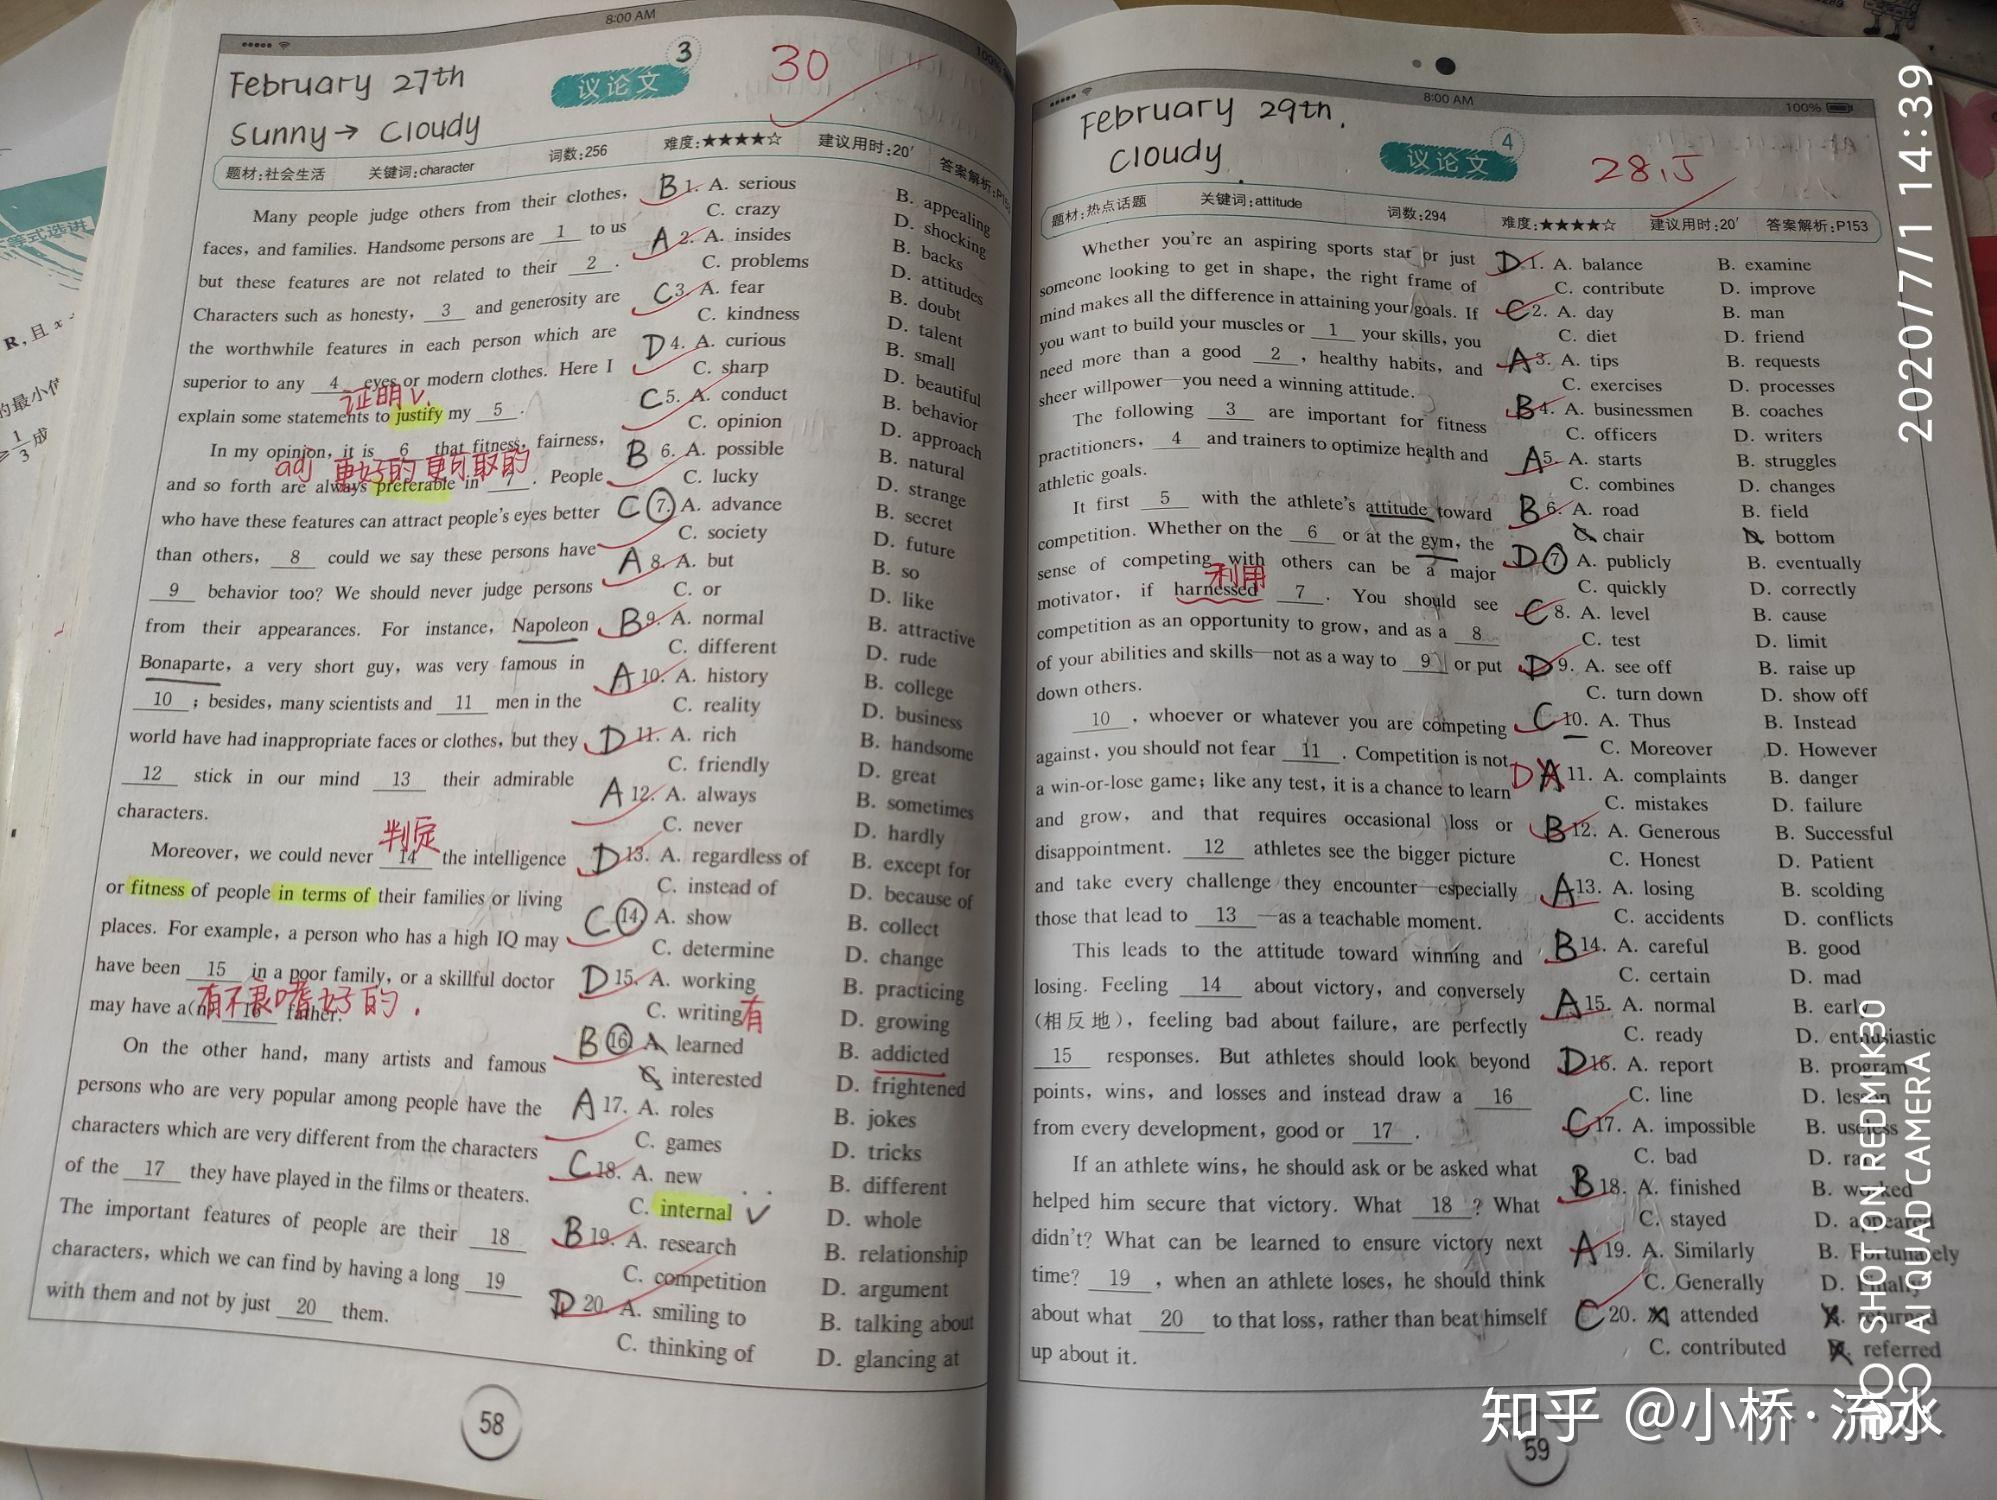 8:00 AM
100%
February 27th
Sunny→ Cloudy
议论文
3
30
题材:社会生活 关键词:character 词数:256 难度:★★★★☆ 建议用时:20′ 答案解析:P153
Many people judge others from their clothes,
faces, and families. Handsome persons are 1 to us
but these features are not related to their 2 .
Characters such as honesty, 3 and generosity are
the worthwhile features in each person which are
superior to any 4 eyes or modern clothes. Here I
证明 v.
explain some statements to justify my 5 .
In my opinion, it is 6 that fitness, fairness,
adj 更好的 更可取的
and so forth are always preferable in 7 . People
who have these features can attract people's eyes better
than others, 8 could we say these persons have
9 behavior too? We should never judge persons
from their appearances. For instance, Napoleon
Bonaparte, a very short guy, was very famous in
10 ; besides, many scientists and 11 men in the
world have had inappropriate faces or clothes, but they
12 stick in our mind 13 their admirable
characters.
判定
Moreover, we could never 14 the intelligence
or fitness of people in terms of their families or living
places. For example, a person who has a high IQ may
have been 15 in a poor family, or a skillful doctor
有不良嗜好的.
may have a(n) 16 father.
On the other hand, many artists and famous
persons who are very popular among people have the
characters which are very different from the characters
of the 17 they have played in the films or theaters.
The important features of people are their 18
characters, which we can find by having a long 19
with them and not by just 20 them.
B 1. A. serious B. appealing
C. crazy D. shocking
A 2. A. insides B. backs
C. problems D. attitudes
C 3. A. fear B. doubt
C. kindness D. talent
D 4. A. curious B. small
C. sharp D. beautiful
C 5. A. conduct B. behavior
C. opinion D. approach
B 6. A. possible B. natural
C. lucky D. strange
C 7. A. advance B. secret
C. society D. future
A 8. A. but B. so
C. or D. like
B 9. A. normal B. attractive
C. different D. rude
A 10. A. history B. college
C. reality D. business
D 11. A. rich B. handsome
C. friendly D. great
A 12. A. always B. sometimes
C. never D. hardly
D 13. A. regardless of B. except for
C. instead of D. because of
C 14. A. show B. collect
C. determine D. change
D 15. A. working B. practicing
C. writing D. growing
有
B 16. A. learned B. addicted
C. interested D. frightened
A 17. A. roles B. jokes
C. games D. tricks
C 18. A. new B. different
C. internal D. whole
B 19. A. research B. relationship
C. competition D. argument
D 20. A. smiling to B. talking about
C. thinking of D. glancing at
58
8:00 AM
100%
February 29th.
Cloudy
议论文
4
28.5
题材:热点话题 关键词:attitude 词数:294 难度:★★★★☆ 建议用时:20′ 答案解析:P153
Whether you're an aspiring sports star or just
someone looking to get in shape, the right frame of
mind makes all the difference in attaining your goals. If
you want to build your muscles or 1 your skills, you
need more than a good 2 , healthy habits, and
sheer willpower—you need a winning attitude.
The following 3 are important for fitness
practitioners, 4 and trainers to optimize health and
athletic goals.
It first 5 with the athlete's attitude toward
competition. Whether on the 6 or at the gym, the
sense of competing with others can be a major
利用
motivator, if harnessed 7 . You should see
competition as an opportunity to grow, and as a 8
of your abilities and skills—not as a way to 9 or put
down others.
10 , whoever or whatever you are competing
against, you should not fear 11 . Competition is not
a win-or-lose game; like any test, it is a chance to learn
and grow, and that requires occasional loss or
disappointment. 12 athletes see the bigger picture
and take every challenge they encounter—especially
those that lead to 13 —as a teachable moment.
This leads to the attitude toward winning and
losing. Feeling 14 about victory, and conversely
(相反地), feeling bad about failure, are perfectly
15 responses. But athletes should look beyond
points, wins, and losses and instead draw a 16
from every development, good or 17 .
If an athlete wins, he should ask or be asked what
helped him secure that victory. What 18 ? What
didn't? What can be learned to ensure victory next
time? 19 , when an athlete loses, he should think
about what 20 to that loss, rather than beat himself
up about it.
D 1. A. balance B. examine
C. contribute D. improve
C 2. A. day B. man
C. diet D. friend
A 3. A. tips B. requests
C. exercises D. processes
B 4. A. businessmen B. coaches
C. officers D. writers
A 5. A. starts B. struggles
C. combines D. changes
B 6. A. road B. field
C. chair D. bottom
D 7. A. publicly B. eventually
C. quickly D. correctly
C 8. A. level B. cause
C. test D. limit
D 9. A. see off B. raise up
C. turn down D. show off
C 10. A. Thus B. Instead
C. Moreover D. However
D A 11. A. complaints B. danger
C. mistakes D. failure
B 12. A. Generous B. Successful
C. Honest D. Patient
A 13. A. losing B. scolding
C. accidents D. conflicts
B 14. A. careful B. good
C. certain D. mad
A 15. A. normal B. early
C. ready D. enthusiastic
D 16. A. report B. program
C. line D. lesson
C 17. A. impossible B. useless
C. bad D.
B 18. A. finished B. worked
C. stayed D. appeared
A 19. A. Similarly B. Fortunately
C. Generally D. Finally
C 20. A. attended B. returned
C. contributed D. referred
59
2020/7/1 14:39
SHOT ON REDMI K30
AI QUAD CAMERA
知乎 @小桥·流水